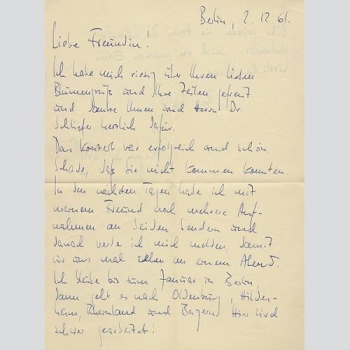 Berlin, 2. 12. 61.
Liebe Freundin.
Ich habe mich riesig über Ihren lieben
Blumengruß und Ihre Zeilen gefreut
und danke Ihnen und Herrn Dr.
herzlich dafür.
Das Konzert war erfolgreich und schön.
Schade, daß Sie nicht kommen konnten.
In den nächsten Tagen habe ich mit
meinem Freund noch mehrere Auf-
nahmen an beiden Sendern und
danach werde ich mich melden, damit
wir uns mal sehen an einem Abend.
Ich bleibe bis zum Januar in Berlin
dann geht es nach Oldenburg, Hildes-
heim, Rheinland und Bayern. Hier wird
schwer gearbeitet!